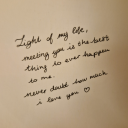 Light of my life,
meeting you is the best
thing to ever happen
to me.
never doubt how much
i love you ♡